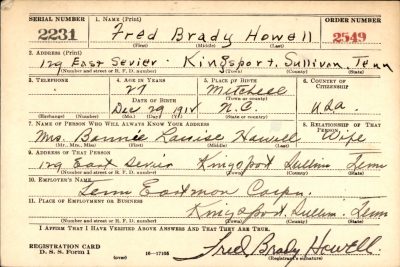 SERIAL NUMBER 1. NAME (Print) ORDER NUMBER
2231 Fred Brady Howell 2549
(First) (Middle) (Last)
2. ADDRESS (Print)
129 East Sevier - Kingsport, Sullivan, Tenn
(Number and street or R. F. D. number) (Town) (County) (State)
3. TELEPHONE 4. AGE IN YEARS 5. PLACE OF BIRTH 6. COUNTRY OF CITIZENSHIP
27 Mitchell
DATE OF BIRTH (Town or county)
Dec 29 1914 N.C. USA.
(Exchange) (Number) (Mo.) (Day) (Yr.) (State or country)
7. NAME OF PERSON WHO WILL ALWAYS KNOW YOUR ADDRESS 8. RELATIONSHIP OF THAT PERSON
Mrs. Bonnie Louise Howell Wife
(Mr., Mrs., Miss) (First) (Middle) (Last)
9. ADDRESS OF THAT PERSON
129 East Sevier Kingsport Sullivan Tenn
(Number and street or R. F. D. number) (Town) (County) (State)
10. EMPLOYER'S NAME
Tenn Eastmon Corpn.
11. PLACE OF EMPLOYMENT OR BUSINESS
Kingsport. Sullivan. Tenn
(Number and street or R. F. D. number) (Town) (County) (State)
I AFFIRM THAT I HAVE VERIFIED ABOVE ANSWERS AND THAT THEY ARE TRUE.
REGISTRATION CARD
D. S. S. Form 1 (over) 16—17105 Fred Brady Howell.
(Registrant's signature)